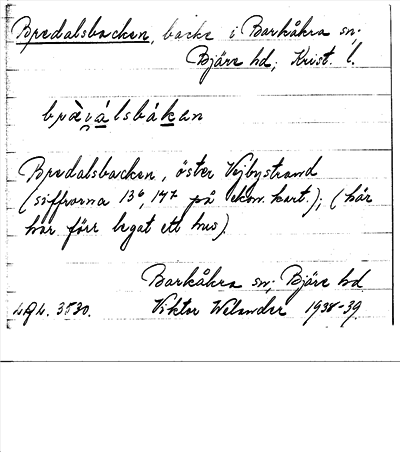 Bredalsbacken, backe i Barkåkra sn;
Bjäre hd; Krist. l.
Bredalsbacken, öster Vejbystrand
(siffrorna 136, 147 på ekon. kart.); (här
har förr legat ett hus).
Barkåkra sn; Bjäre hd
Viktor Welander 1938-39.